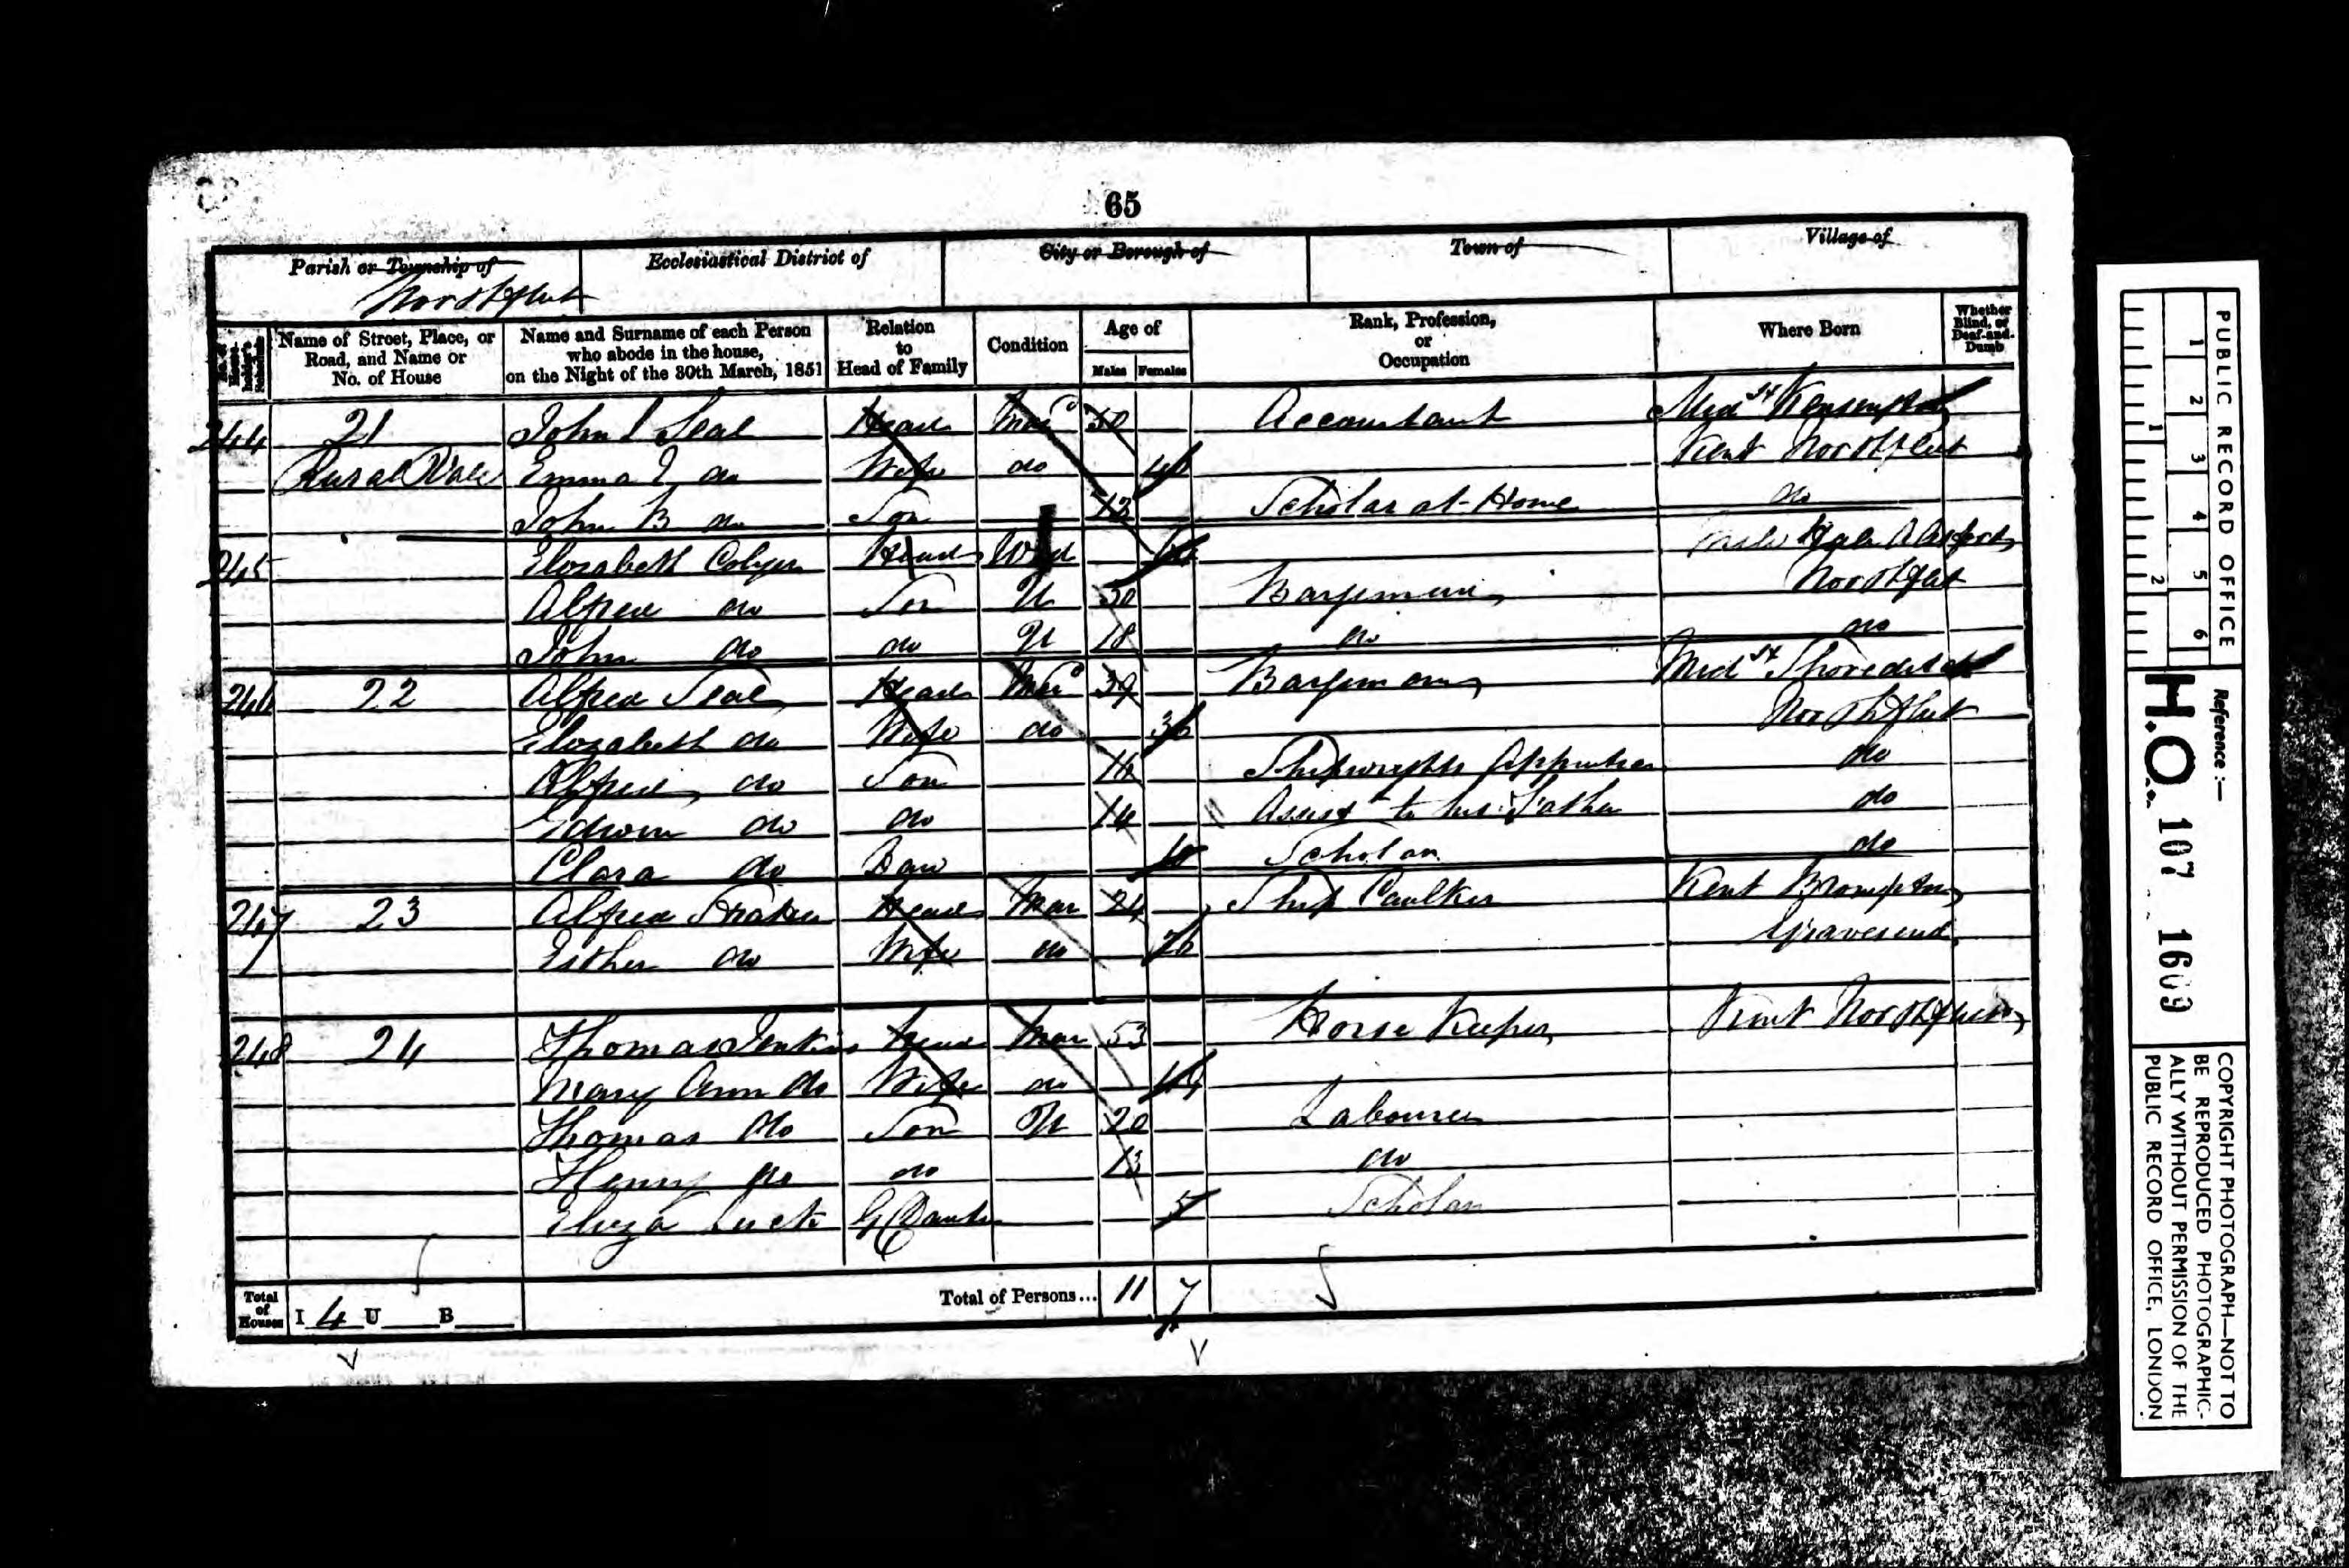 65
Parish or Township of
Ecclesiastical District of
City or Borough of
Town of
Village of
Northfleet
No. of House-holder's Schedule
Name of Street, Place, or Road, and Name or No. of House
Name and Surname of each Person who abode in the house, on the Night of the 30th March, 1851
Relation to Head of Family
Condition
Age of
Males
Females
Rank, Profession, or Occupation
Where Born
Whether Blind, or Deaf-and-Dumb
244 21 John S Seal Head Mard 50 Accountant Midsx Kensington
Rural Vale Emma do Wife do Kent Northfleet
John B do Son 13 Scholar at Home do
245 Elizabeth Colyer Head Wid
Alfred do Son U 30 Bargeman Northfleet
John do do U 18 do do
246 22 Alfred Seal Head Mard 39 Bargeman Midsx Shoreditch
Elizabeth do Wife do 36 Northfleet
Alfred do Son 16 Shipwrights Apprentice do
Edwin do do 14 Assist to his Father do
Clara do Dau 10 Scholar do
247 23 Alfred Head Mar 24 Ship Caulker Kent Brompton
Esther do Wife do 26 Gravesend
248 24 Thomas Jenkins Head Mar 53 Horse Keeper Kent Northfleet
Mary Ann do Wife do
Thomas do Son U 20 Labourer
Henry do do 13 do
Eliza Luck G Daur 5 Scholar
Total of Houses I 4 U B
Total of Persons... 11 7
1 2 3 4 5 6
1 2
PUBLIC RECORD OFFICE
Reference :—
H.O. 107 1609
COPYRIGHT PHOTOGRAPH—NOT TO
BE REPRODUCED PHOTOGRAPHIC-
ALLY WITHOUT PERMISSION OF THE
PUBLIC RECORD OFFICE, LONDON